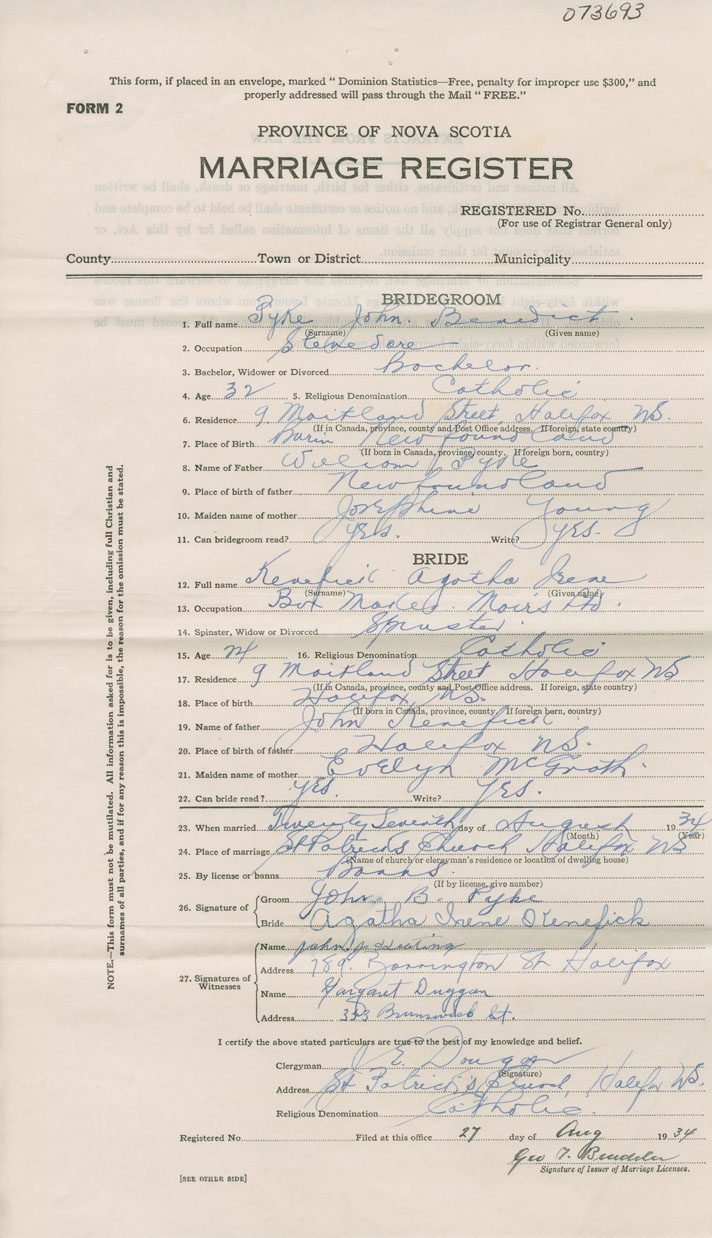 073693
This form, if placed in an envelope, marked “ Dominion Statistics—Free, penalty for improper use $300,” and
properly addressed will pass through the Mail “ FREE.”
FORM 2
PROVINCE OF NOVA SCOTIA
MARRIAGE REGISTER
REGISTERED No.
(For use of Registrar General only)
County Town or District Municipality
BRIDEGROOM
1. Full name Pyke John Benedict
(Surname) (Given name)
2. Occupation Stevedore
3. Bachelor, Widower or Divorced Bachelor.
4. Age 32 5. Religious Denomination Catholic
6. Residence 9 Maitland Street, Halifax NS.
(If in Canada, province, county and Post Office address. If foreign, state country)
7. Place of Birth Burin Newfoundland
(If born in Canada, province, county. If foreign born, country)
8. Name of Father William Pyke
9. Place of birth of father Newfoundland
10. Maiden name of mother Josephine Young
11. Can bridegroom read? yes. Write? yes.
BRIDE
12. Full name Kenefick Agatha Irene
(Surname) (Given name)
13. Occupation Box Maker. Moirs Ltd.
14. Spinster, Widow or Divorced Spinster.
15. Age 24 16. Religious Denomination Catholic
17. Residence 9 Maitland Street Halifax NS
(If in Canada, province, county and Post Office address. If foreign, state country)
18. Place of birth Halifax NS.
(If born in Canada, province, county. If foreign born, country)
19. Name of father John Kenefick
20. Place of birth of father Halifax NS.
21. Maiden name of mother Evelyn McGrath.
22. Can bride read? yes. Write? yes.
23. When married Twenty Seventh day of August 1934
(Month) (Year)
24. Place of marriage St Patricks Church Halifax NS
(Name of church or clergyman's residence or location of dwelling house)
25. By license or banns Banns.
(If by license, give number)
26. Signature of Groom John B. Pyke
Bride Agatha Irene Kenefick
27. Signatures of Witnesses
Name John J.
Address 789 Barrington St Halifax
Name Margaret Duggan
Address 333 Brunswick St.
I certify the above stated particulars are true to the best of my knowledge and belief.
Clergyman J. E.
(Signature)
Address St Patrick's Church, Halifax NS.
Religious Denomination Catholic.
Registered No. Filed at this office 27 day of Aug 1934
Geo T.
Signature of Issuer of Marriage Licenses.
[SEE OTHER SIDE]
NOTE.—This form must not be mutilated. All information asked for is to be given, including full Christian and
surnames of all parties, and if for any reason this is impossible, the reason for the omission must be stated.